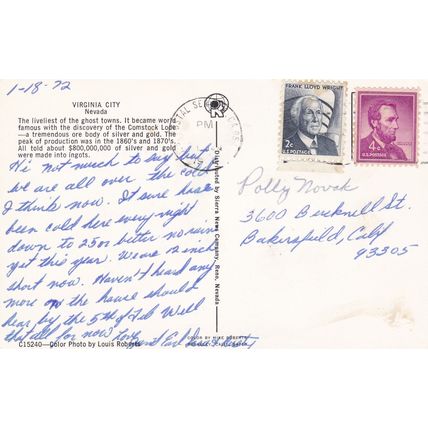 1-18-72
VIRGINIA CITY
Nevada
The liveliest of the ghost towns. It became world
famous with the discovery of the Comstock Lode
— a tremendous ore body of silver and gold. The
peak of production was in the 1860's and 1870's.
All told about $800,000,000 of silver and gold
were made into ingots.
Hi not much to say but
we are all over the cold
I think now. It sure has
been cold here every night
down to 25 or better no rain
yet this year. We are 12 inch
short now. Haven't heard any
more on the house should
hear by the 5th of Feb Well
that all for now Love
and Earl
C15240—Color Photo by Louis Roberts
Distributed by Sierra News Company, Reno, Nevada
COLOR BY MIKE ROBERTS
POSTAL SE
PM
FRANK LLOYD WRIGHT
2c
U.S. POSTAGE
4c
U.S. POSTAGE
Polly Novak
3600 Bucknell St.
Bakersfield, Calf
93305